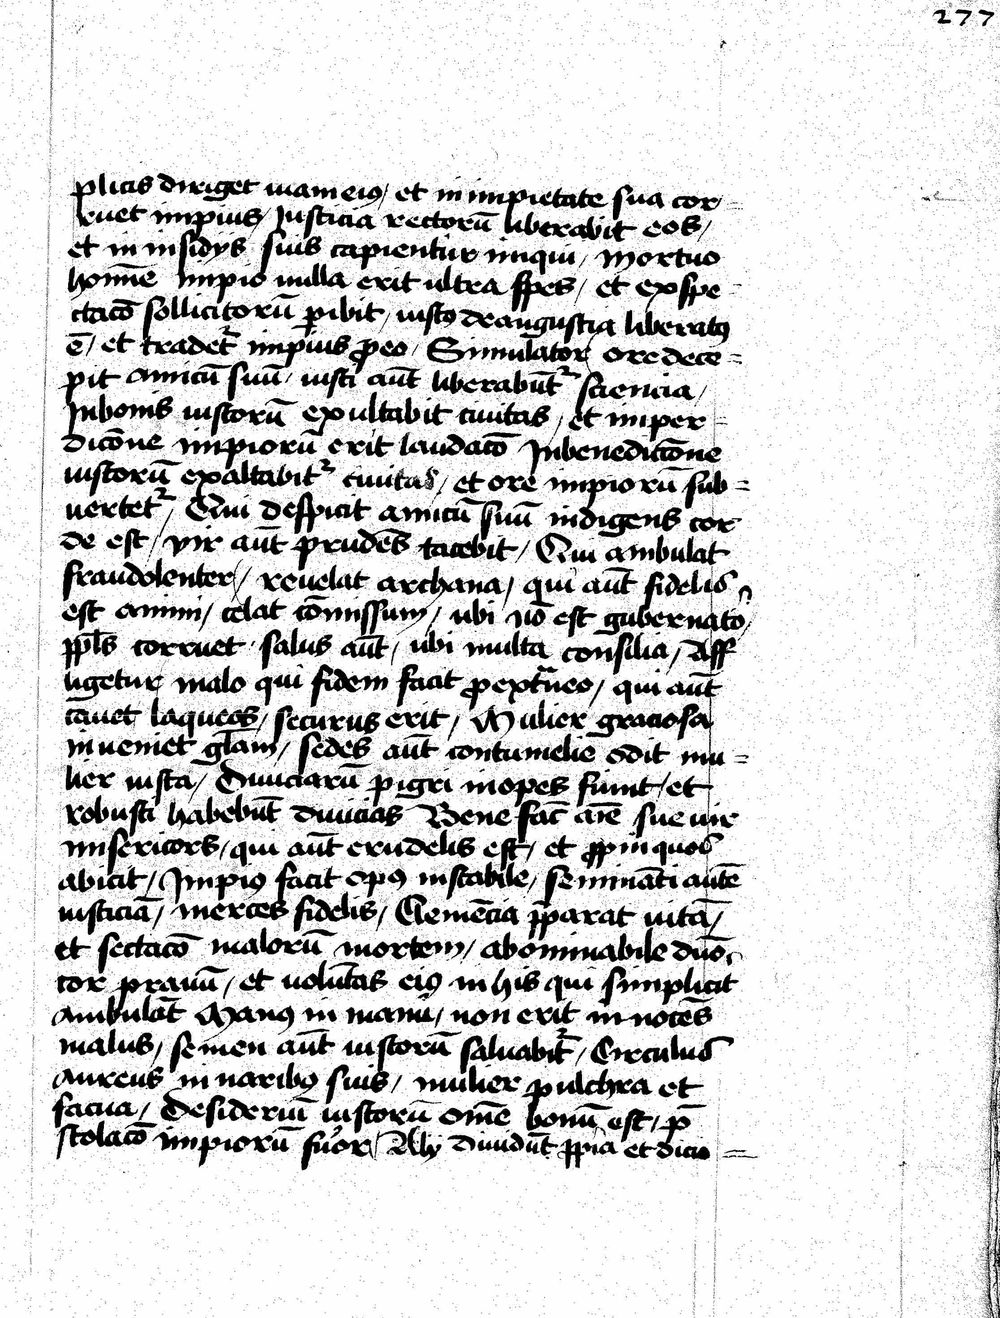 277
plicis diriget uiam eiꝯ / et in impietate sua cor=
ruet impius / Justicia rectorū liberabit eos /
et in insidijs suis capientur iniqui / mortuo
homīe impio nulla erit ultra spes / et expe=
ctacō sollicitorū ꝑibit / iustꝰ de angustia liberatꝰ
ē / et tradet᷑ impius ꝓ eo / Simulator ore dece=
pit amicū suū / iusti aūt liberabūt᷑ sciencia /
In bonis iustorū exultabit ciuitas / et in per=
dicōne impiorū erit laudacō In benedictōne
iustorū exaltabit᷑ ciuitas / et ore impiorū sub=
uertet᷑ / Qui despicit amicū suū indigens cor
de est / vir aūt prudēs tacebit / Qui ambulat
fraudolenter / reuelat archana / qui aūt fidelis
est animi / celat cōmissum / ubi nō est gubernator
ppl̄s corruet salus aūt / ubi multa consilia / Aff
ligetur malo qui fidem facit ꝓ extᷓneo / qui aūt
cauet laqueos / securus erit / Mulier graciosa
inueniet gl̄am / sedes aūt contumelie odit mu=
lier iusta / Diuiciarū pigri inopes fiunt / et
robusti habebūt diuicias Bene fac̄ aīe sue uir
misericors / qui aūt crudelis est / et ꝓpinquos
abicit / Impiꝰ facit opꝰ instabile / semināti autē
iusticiā / merces fidelis / Clemēcia p̄parat uitā /
et sectacō malorū mortem / abominabile dnō
cor prauū / et uolūtas eiꝰ in his qui simplicit
ambulāt Manꝰ in manu / non erit in nocēs
malus / semen aūt iustorū saluabit᷑ / Circulus
aureus in naribꝰ suis / mulier pulchra et
fatua / Desideriū iustorū om̄e bonū est / p̄
stolacō impiorū furor / Alij diuidūt ꝓpia et dicio=